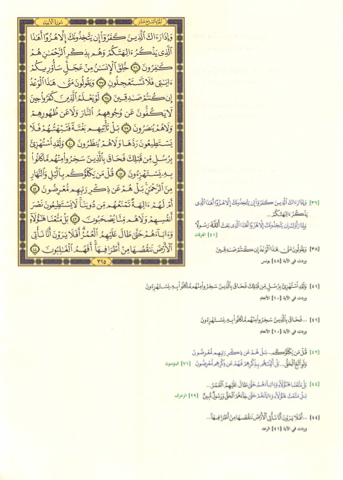 وَإِذَا رَءَاكَ ٱلَّذِينَ كَفَرُوٓا۟ إِن يَتَّخِذُونَكَ إِلَّا هُزُوًا أَهَٰذَا
ٱلَّذِى يَذْكُرُ ءَالِهَتَكُمْ وَهُم بِذِكْرِ ٱلرَّحْمَٰنِ هُمْ
كَٰفِرُونَ ﴿٣٦﴾ خُلِقَ ٱلْإِنسَٰنُ مِنْ عَجَلٍ سَأُو۟رِيكُمْ
ءَايَٰتِى فَلَا تَسْتَعْجِلُونِ ﴿٣٧﴾ وَيَقُولُونَ مَتَىٰ هَٰذَا ٱلْوَعْدُ
إِن كُنتُمْ صَٰدِقِينَ ﴿٣٨﴾ لَوْ يَعْلَمُ ٱلَّذِينَ كَفَرُوا۟ حِينَ
لَا يَكُفُّونَ عَن وُجُوهِهِمُ ٱلنَّارَ وَلَا عَن ظُهُورِهِمْ
وَلَا هُمْ يُنصَرُونَ ﴿٣٩﴾ بَلْ تَأْتِيهِم بَغْتَةً فَتَبْهَتُهُمْ فَلَا
يَسْتَطِيعُونَ رَدَّهَا وَلَا هُمْ يُنظَرُونَ ﴿٤٠﴾ وَلَقَدِ ٱسْتُهْزِئَ
بِرُسُلٍ مِّن قَبْلِكَ فَحَاقَ بِٱلَّذِينَ سَخِرُوا۟ مِنْهُم مَّا كَانُوا۟
بِهِۦ يَسْتَهْزِءُونَ ﴿٤١﴾ قُلْ مَن يَكْلَؤُكُم بِٱلَّيْلِ وَٱلنَّهَارِ
مِنَ ٱلرَّحْمَٰنِ بَلْ هُمْ عَن ذِكْرِ رَبِّهِم مُّعْرِضُونَ ﴿٤٢﴾
أَمْ لَهُمْ ءَالِهَةٌ تَمْنَعُهُم مِّن دُونِنَا لَا يَسْتَطِيعُونَ نَصْرَ
أَنفُسِهِمْ وَلَا هُم مِّنَّا يُصْحَبُونَ ﴿٤٣﴾ بَلْ مَتَّعْنَا هَٰٓؤُلَآءِ
وَءَابَآءَهُمْ حَتَّىٰ طَالَ عَلَيْهِمُ ٱلْعُمُرُ أَفَلَا يَرَوْنَ أَنَّا نَأْتِى
ٱلْأَرْضَ نَنقُصُهَا مِنْ أَطْرَافِهَآ أَفَهُمُ ٱلْغَٰلِبُونَ ﴿٤٤﴾
٣٢٥
(٣٦) وَإِذَا رَءَاكَ ٱلَّذِينَ كَفَرُوٓا۟ إِن يَتَّخِذُونَكَ إِلَّا هُزُوًا أَهَٰذَا ٱلَّذِى
يَذْكُرُ ءَالِهَتَكُمْ...
وَإِذَا رَأَوْكَ إِن يَتَّخِذُونَكَ إِلَّا هُزُوًا أَهَٰذَا ٱلَّذِى بَعَثَ ٱللَّهُ رَسُولًا
[٤١] الفرقان
(٣٨) وَيَقُولُونَ مَتَىٰ هَٰذَا ٱلْوَعْدُ إِن كُنتُمْ صَٰدِقِينَ
وردت في الآية [٤٨] يونس
(٤١) وَلَقَدِ ٱسْتُهْزِئَ بِرُسُلٍ مِّن قَبْلِكَ فَحَاقَ بِٱلَّذِينَ سَخِرُوا۟ مِنْهُم مَّا كَانُوا۟ بِهِۦ يَسْتَهْزِءُونَ
وردت في الآية [١٠] الأنعام
(٤١) ...فَحَاقَ بِٱلَّذِينَ سَخِرُوا۟ مِنْهُم مَّا كَانُوا۟ بِهِۦ يَسْتَهْزِءُونَ
وردت في الآية [١٠] الأنعام
(٤٢) قُلْ مَن يَكْلَؤُكُم... بَلْ هُمْ عَن ذِكْرِ رَبِّهِم مُّعْرِضُونَ
وَلَوِ ٱتَّبَعَ ٱلْحَقُّ... بَلْ أَتَيْنَٰهُم بِذِكْرِهِمْ فَهُمْ عَن ذِكْرِهِم مُّعْرِضُونَ [٧١] المؤمنون
(٤٤) بَلْ مَتَّعْنَا هَٰٓؤُلَآءِ وَءَابَآءَهُمْ حَتَّىٰ طَالَ عَلَيْهِمُ ٱلْعُمُرُ...
بَلْ مَتَّعْتُ هَٰٓؤُلَآءِ وَءَابَآءَهُمْ حَتَّىٰ جَآءَهُمُ ٱلْحَقُّ وَرَسُولٌ مُّبِينٌ [٢٩] الزخرف
(٤٤) ...أَفَلَا يَرَوْنَ أَنَّا نَأْتِى ٱلْأَرْضَ نَنقُصُهَا مِنْ أَطْرَافِهَآ...
وردت في الآية [٤١] الرعد